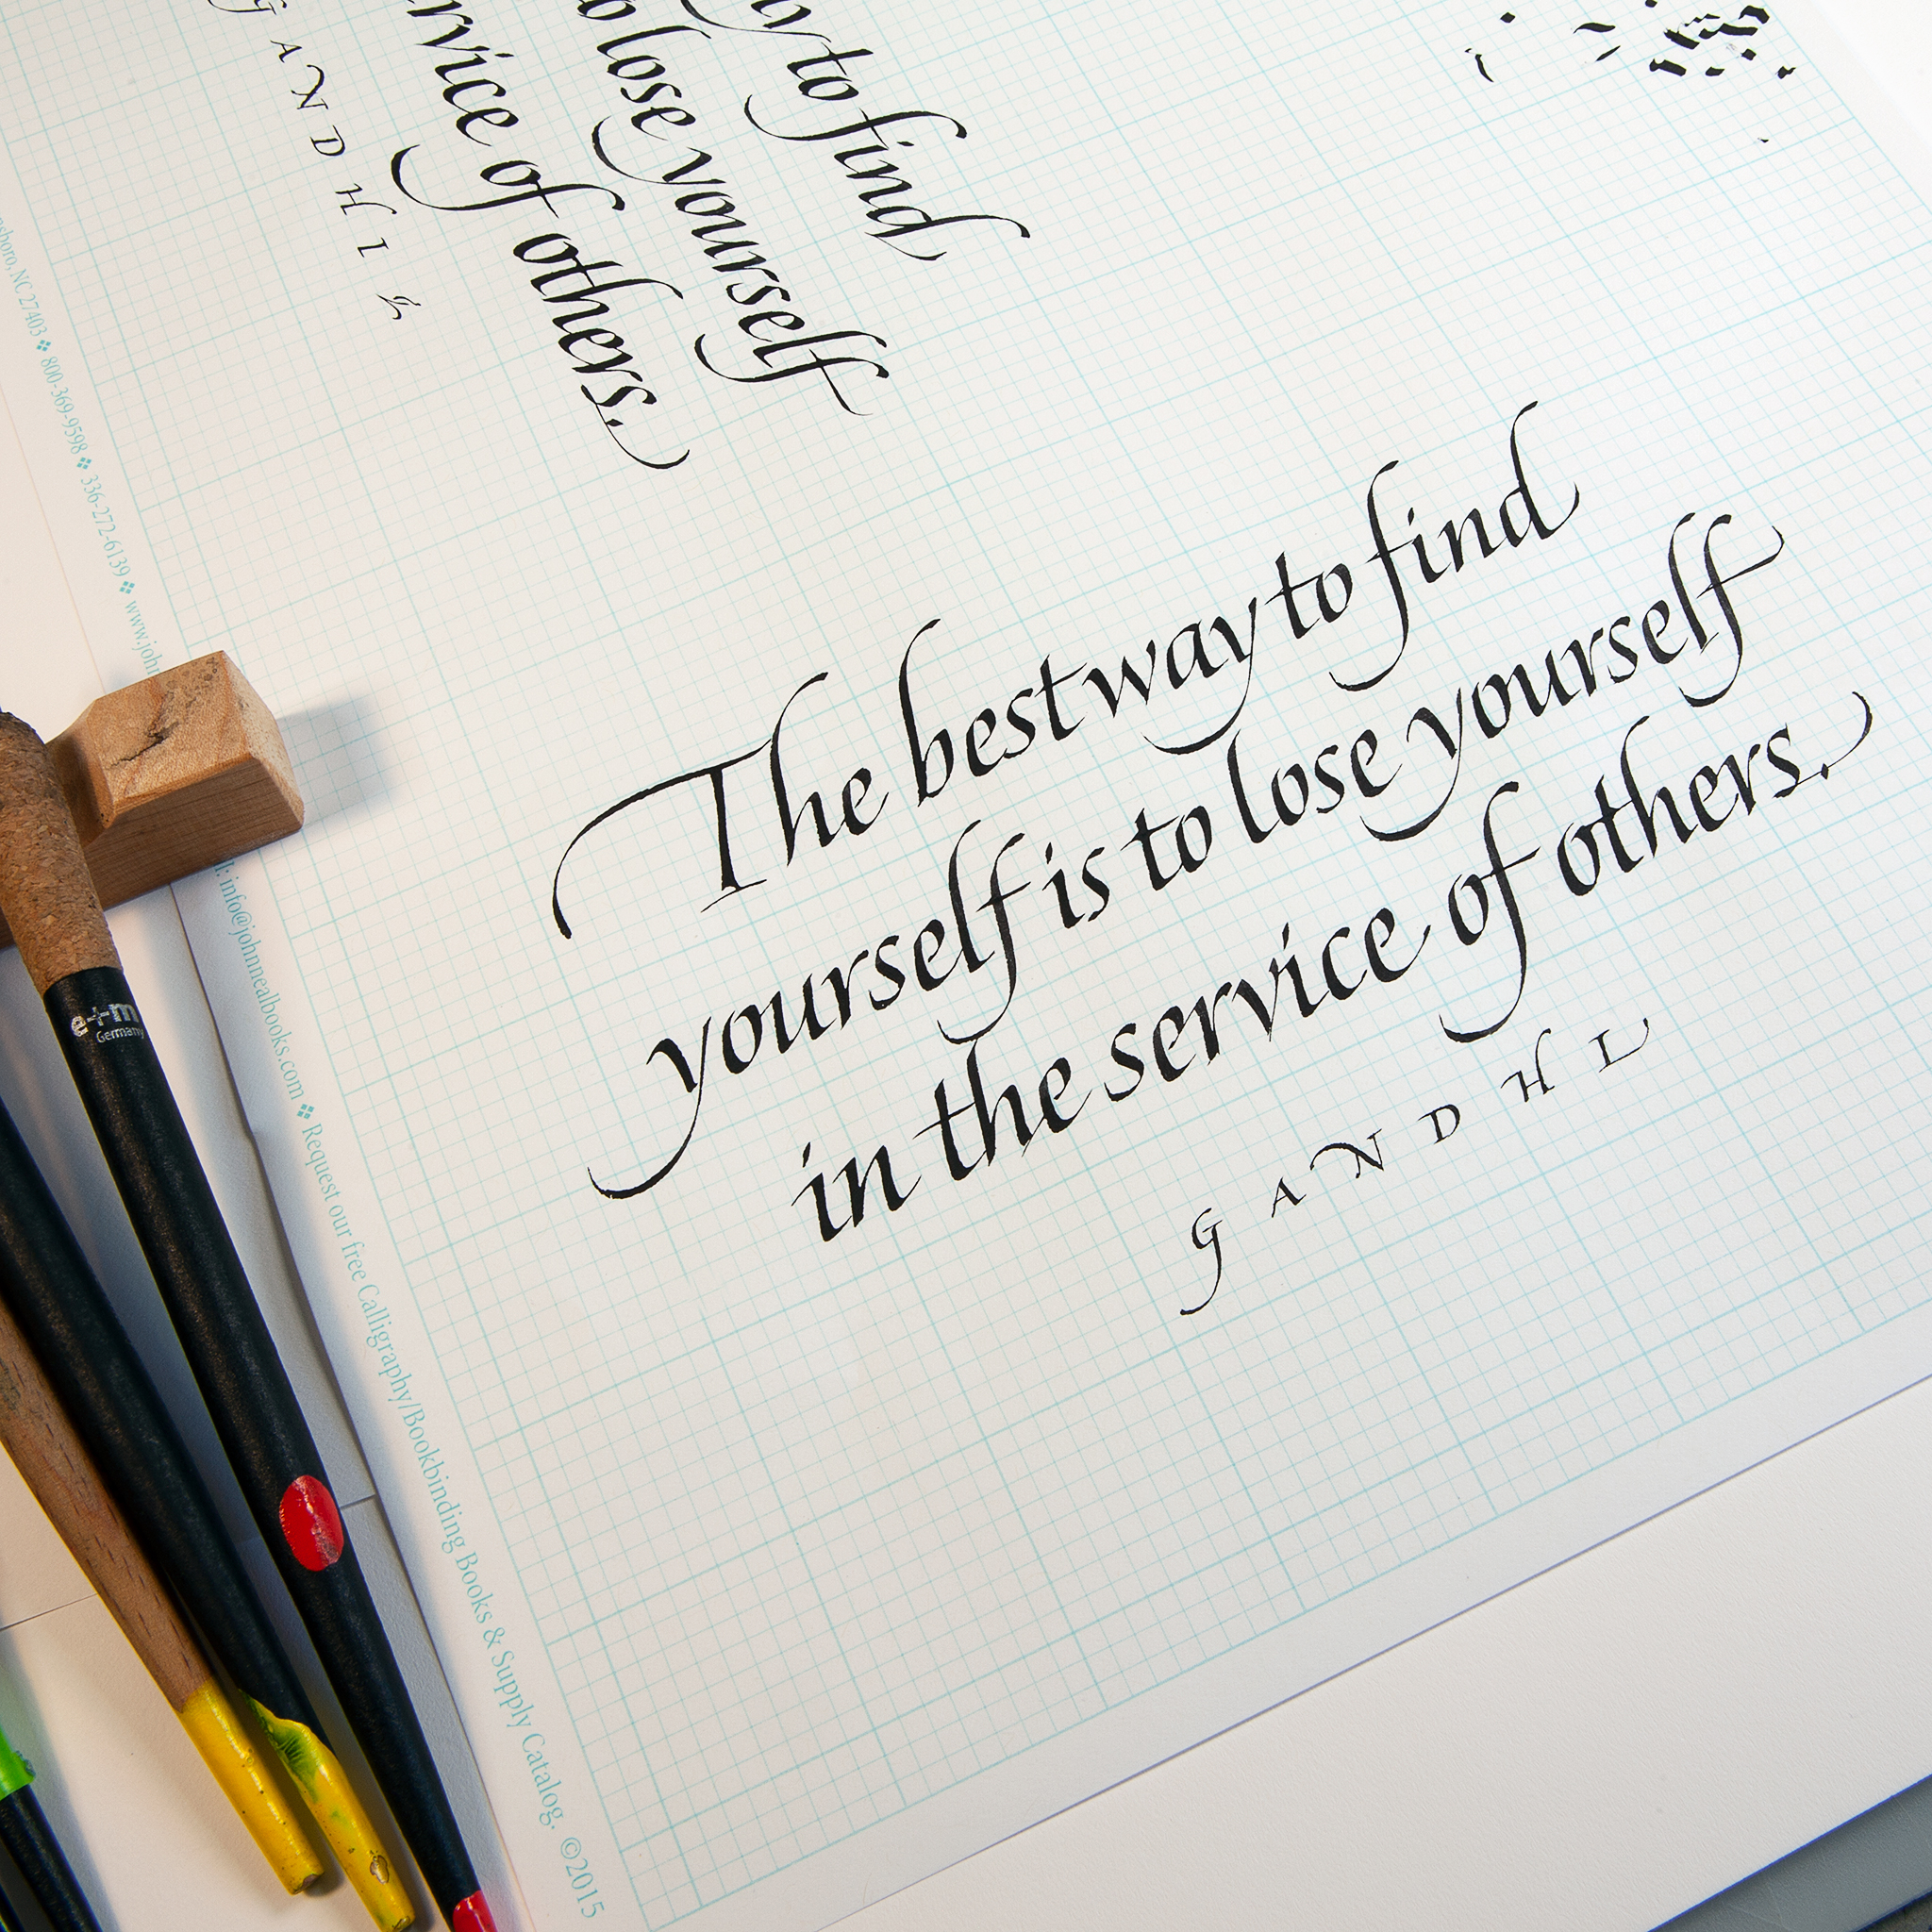 The best way to find
yourself is to lose yourself
in the service of others.
GANDHI
y to find
lose yourself
rvice of others.
GANDHI
NC 27403 ❖ 800-369-9598 ❖ 336-272-6139 ❖ www.john
info@johnnealbooks.com ❖ Request our free Calligraphy/Bookbinding Books & Supply Catalog. ©2015
e+m
Germany